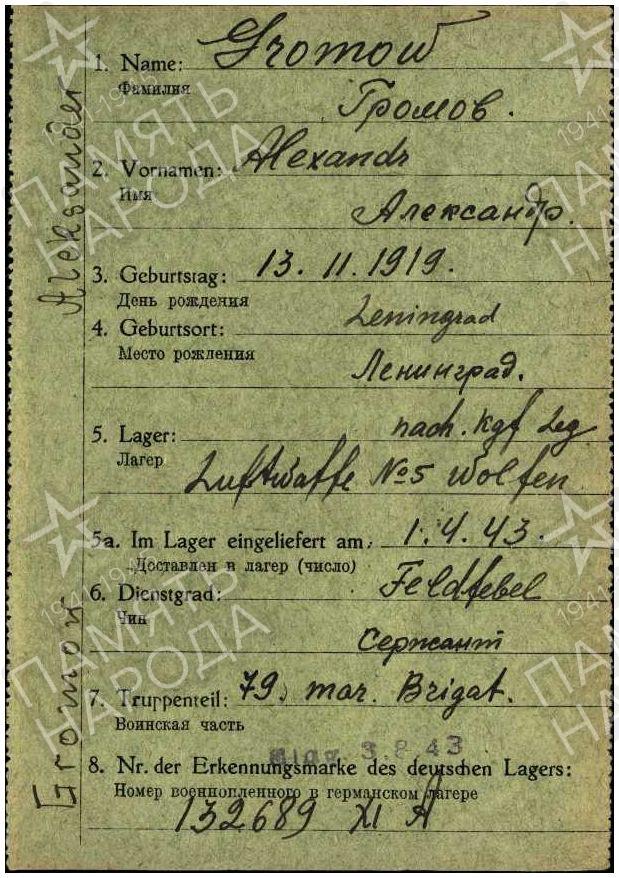 1. Name: Gromow
Фамилия
Громов.
2. Vornamen: Alexandr
Имя
Александр.
3. Geburtstag: 13. 11. 1919.
День рождения
4. Geburtsort: Leningrad
Место рождения
Ленинград.
5. Lager: nach. Kgf Leg
Лагер
Luftwaffe No5 Wolfen
5a. Im Lager eingeliefert am: 1. 4. 43.
Доставлен в лагер (число)
6. Dienstgrad: Feldfebel
Чин
Сержант
7. Truppenteil: 79. mar. Brigat.
Воинская часть
43
8. Nr. der Erkennungsmarke des deutschen Lagers:
Номер военнопленного в германском лагере
132689 XI A
Gromow Aleksander
1941-1945
ПАМЯТЬ
НАРОДА
1941-1945
ПАМЯТЬ
НАРОДА